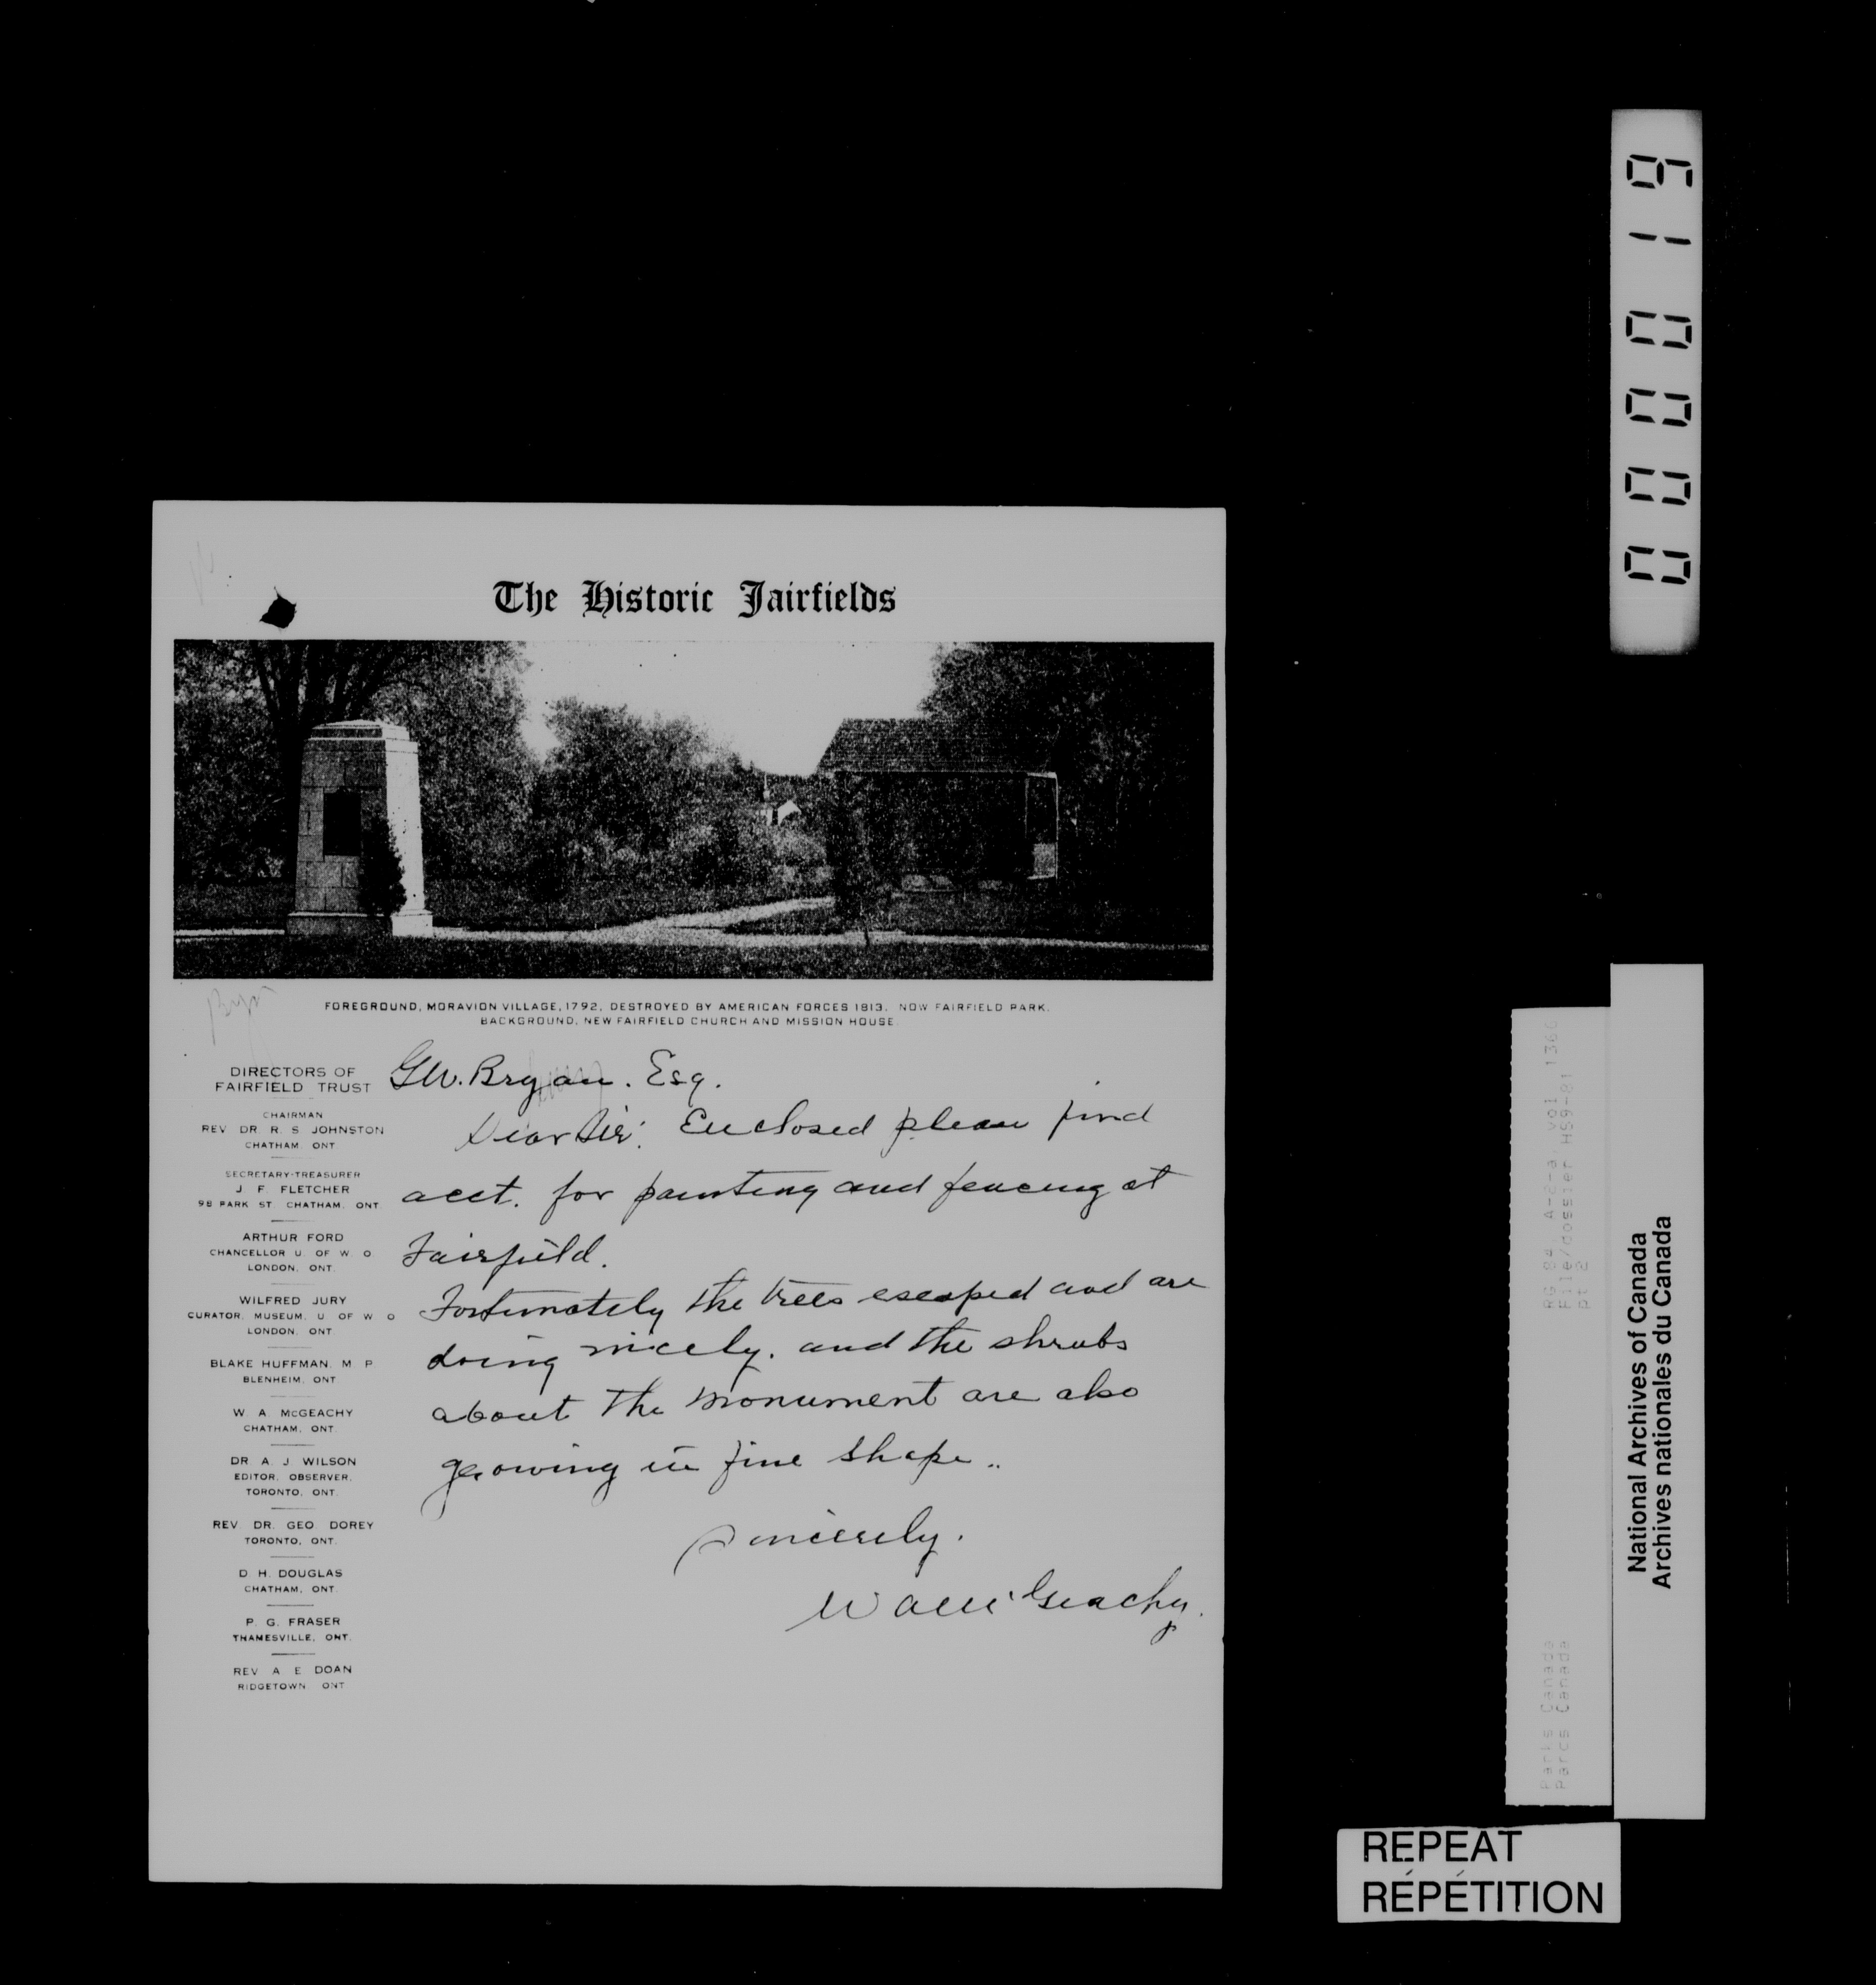 The Historic Fairfields
FOREGROUND, MORAVION VILLAGE, 1792, DESTROYED BY AMERICAN FORCES 1813. NOW FAIRFIELD PARK.
BACKGROUND, NEW FAIRFIELD CHURCH AND MISSION HOUSE.
DIRECTORS OF
FAIRFIELD TRUST
CHAIRMAN
REV. DR. R. S. JOHNSTON
CHATHAM, ONT.
SECRETARY-TREASURER
J. F. FLETCHER
98 PARK ST. CHATHAM, ONT.
ARTHUR FORD
CHANCELLOR U. OF W. O.
LONDON, ONT.
WILFRED JURY
CURATOR, MUSEUM, U. OF W. O.
LONDON, ONT.
BLAKE HUFFMAN, M. P.
BLENHEIM, ONT.
W. A. McGEACHY
CHATHAM, ONT.
DR. A. J. WILSON
EDITOR, OBSERVER,
TORONTO, ONT.
REV. DR. GEO. DOREY
TORONTO, ONT.
D. H. DOUGLAS
CHATHAM, ONT.
P. G. FRASER
THAMESVILLE, ONT.
REV. A. E. DOAN
RIDGETOWN, ONT.
G.W. Bryan. Esq.
Dear Sir: Enclosed please find
acct. for painting and fencing at
Fairfield.
Fortunately the trees escaped and are
doing nicely. and the shrubs
about the monument are also
growing in fine shape..
Sincerely.
W A McGeachy.
000016
RG 84, A-2-a, vol. 1360
File/dossier HS9-81
pt 2
Parks Canada
Parcs Canada
National Archives of Canada
Archives nationales du Canada
REPEAT
RÉPÉTITION